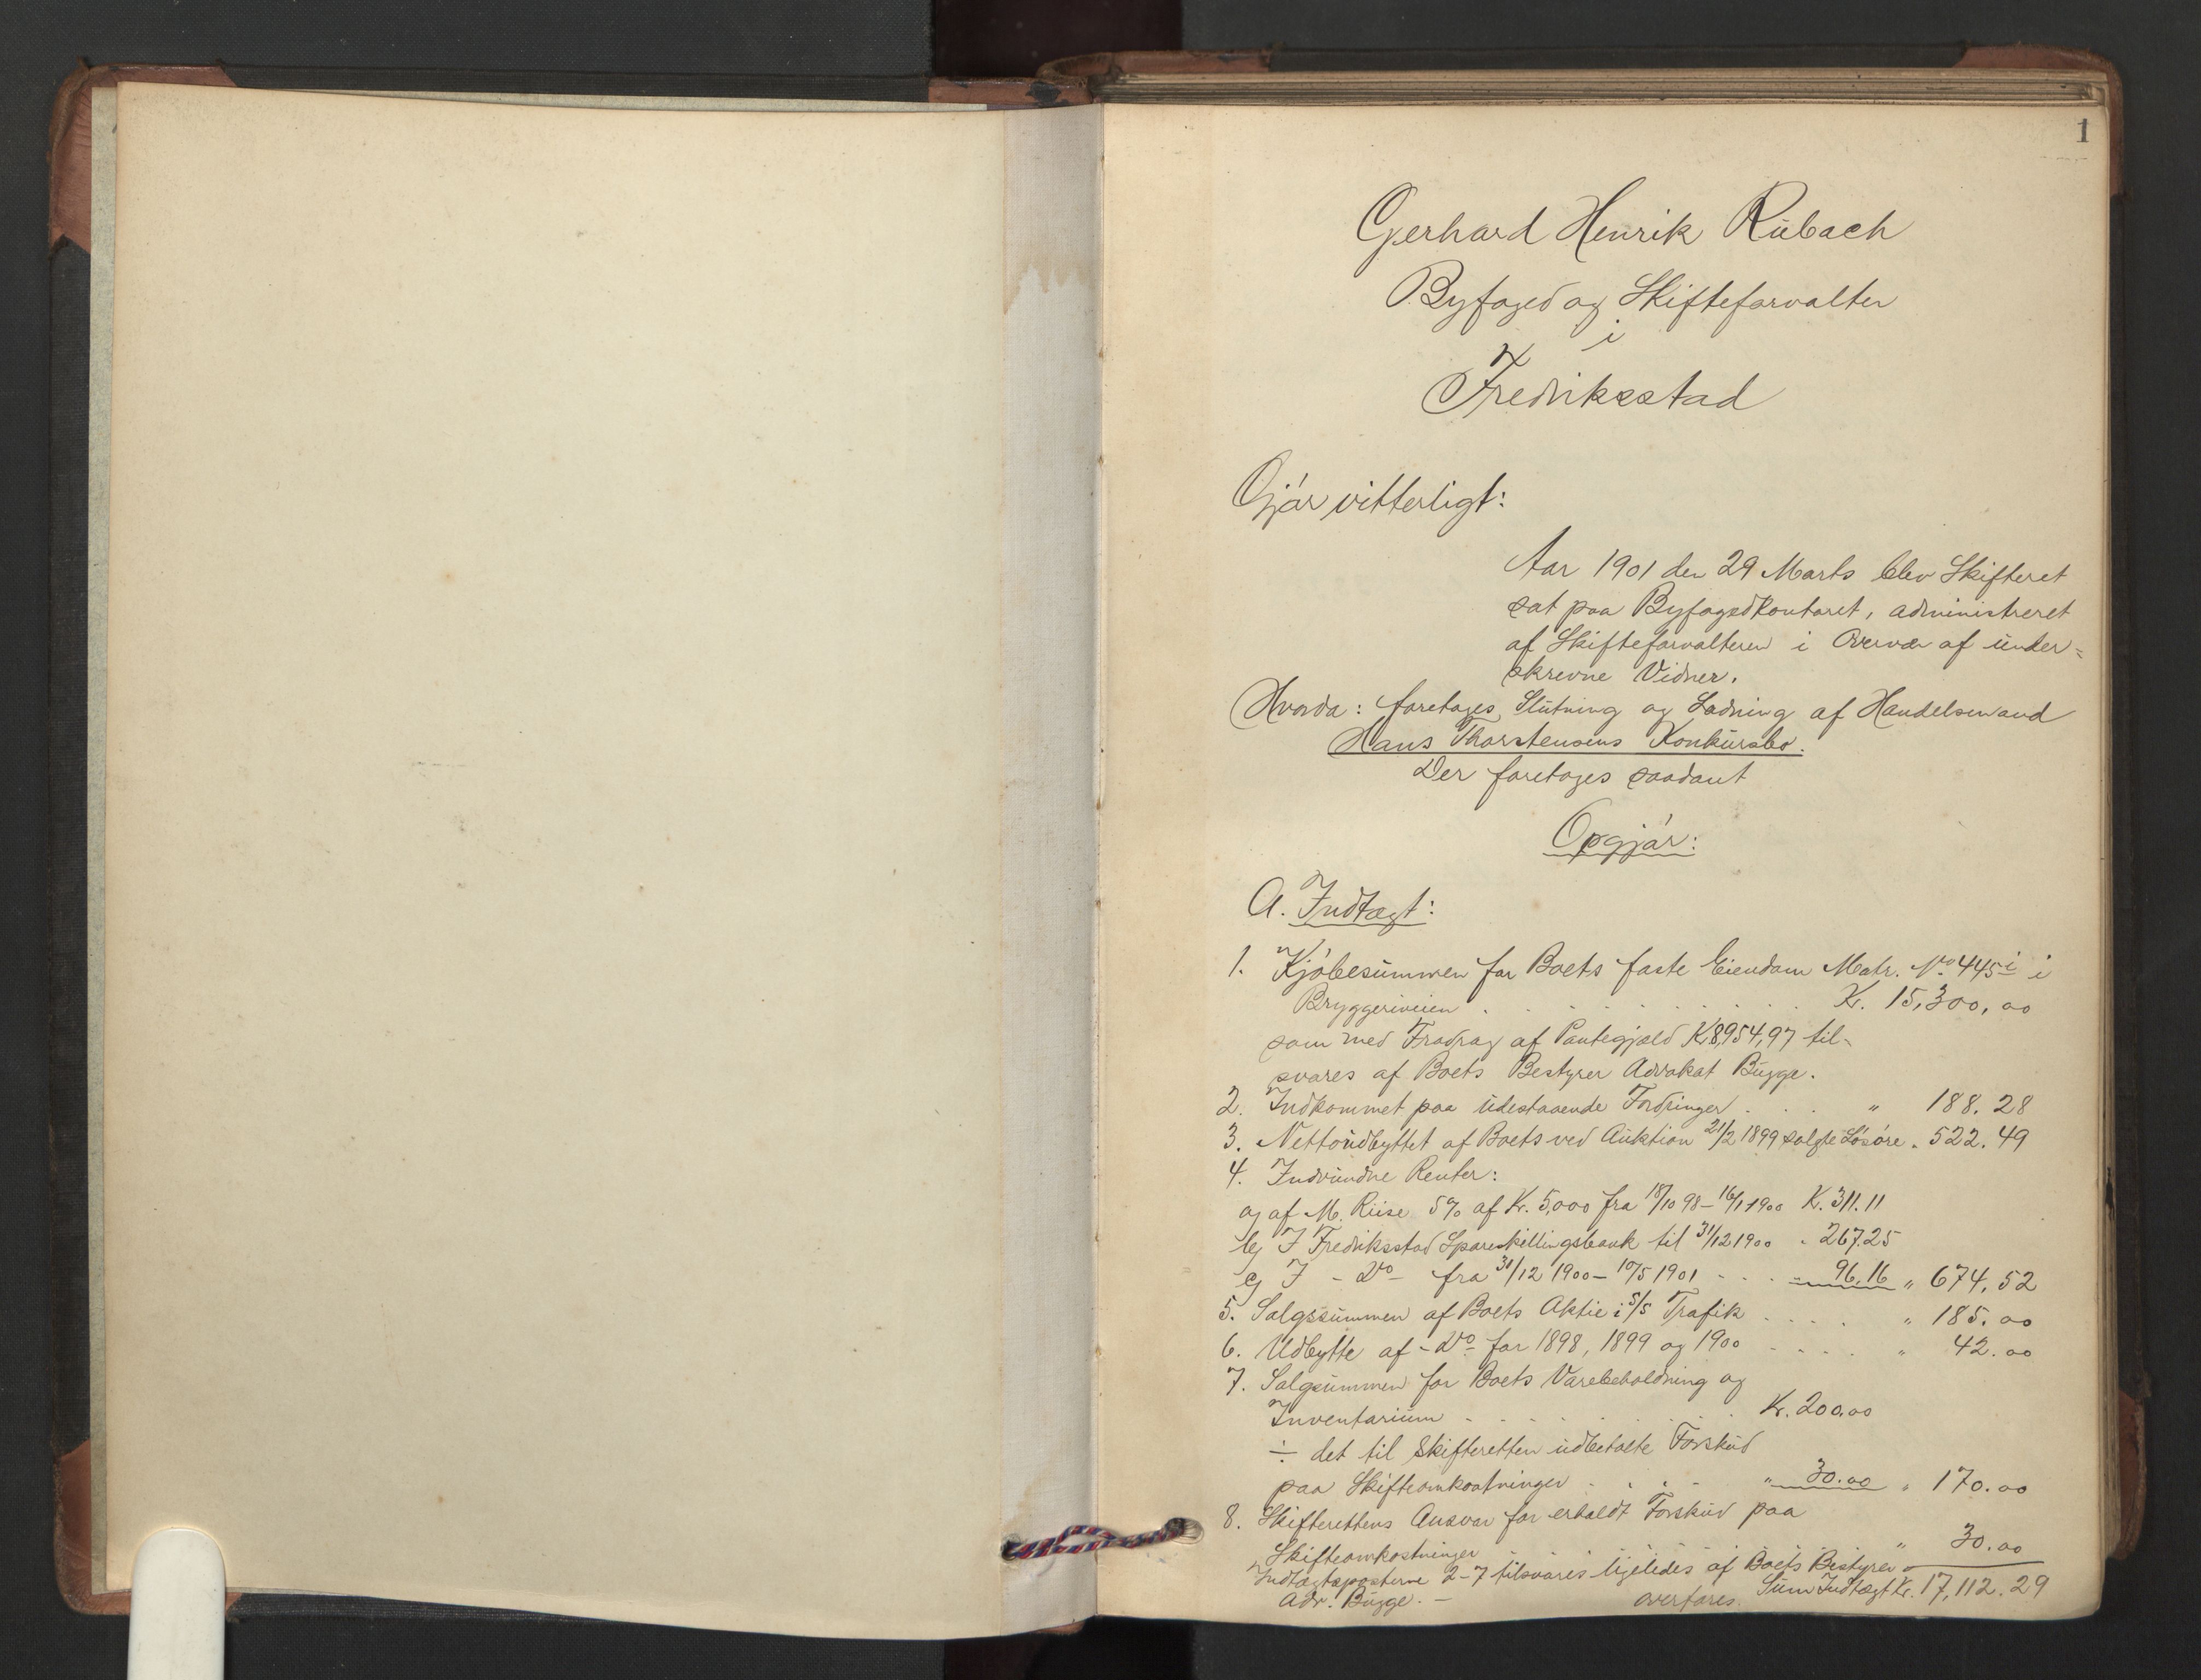 1
Gerhard Henrik Rübach
Byfoged og Skifteforvalter
i
Fredriksstad
Gjør vitterligt:
Aar 1901 den 29 Marts blev Skifteret
sat paa Byfogedkontoret, administreret
af Skifteforvalteren i Overvær af under=
skrevne Vidner.
Hvorda: foretoges Slutning og Lodning af Handelsmand
Hans Thorstensens Konkursbo.
Der foretoges saadant
Opgjør:
A. Indtægt:
1. Kjøbesummen for Boets faste Eiendom Matr. No. 445 i i
Bryggeriveien . . . . . . . . . . Kr. 15,300,00
som med Fradrag af Pantegjæld K 8,954,97 til-
svares af Boets Bestyrer Advokat Bugge.
2. Indkommet paa udestaaende Fordringer . . . " 188.28
3. Nettoudbyttet af Boets ved Auktion 21/2 1899 solgte Løsøre . 522.49
4. Indvundne Renter:
a) af M. Riise 5% af Kr. 5,000 fra 18/10 98 - 16/1 1900 K. 311.11
b) I Fredriksstad Spareskillingsbank til 31/12 1900 " 267.25
c) I - Do - fra 31/12 1900 - 10/5 1901 . . . " 96,16 " 674,52
5. Salgssummen af Boets Aktie i S/S Trafik . . . . " 185.00
6. Udbytte af - Do - for 1898, 1899 og 1900 . . . . " 42.00
7. Salgsummen for Boets Varebeholdning og
Inventarium . . . . . . . . Kr. 200,00
÷ det til Skifteretten udbetalte Forskud
paa Skifteomkostninger . . . . " 30.00 " 170.00
8. Skifterettens Ansvar for erholdt Forskud paa
Skifteomkostninger " 30.00
Indtægtsposterne 2-7 tilsvares ligeledes af Boets Bestyrer
Adv. Bugge. - Sum Indtægt Kr. 17,112.29
overføres.